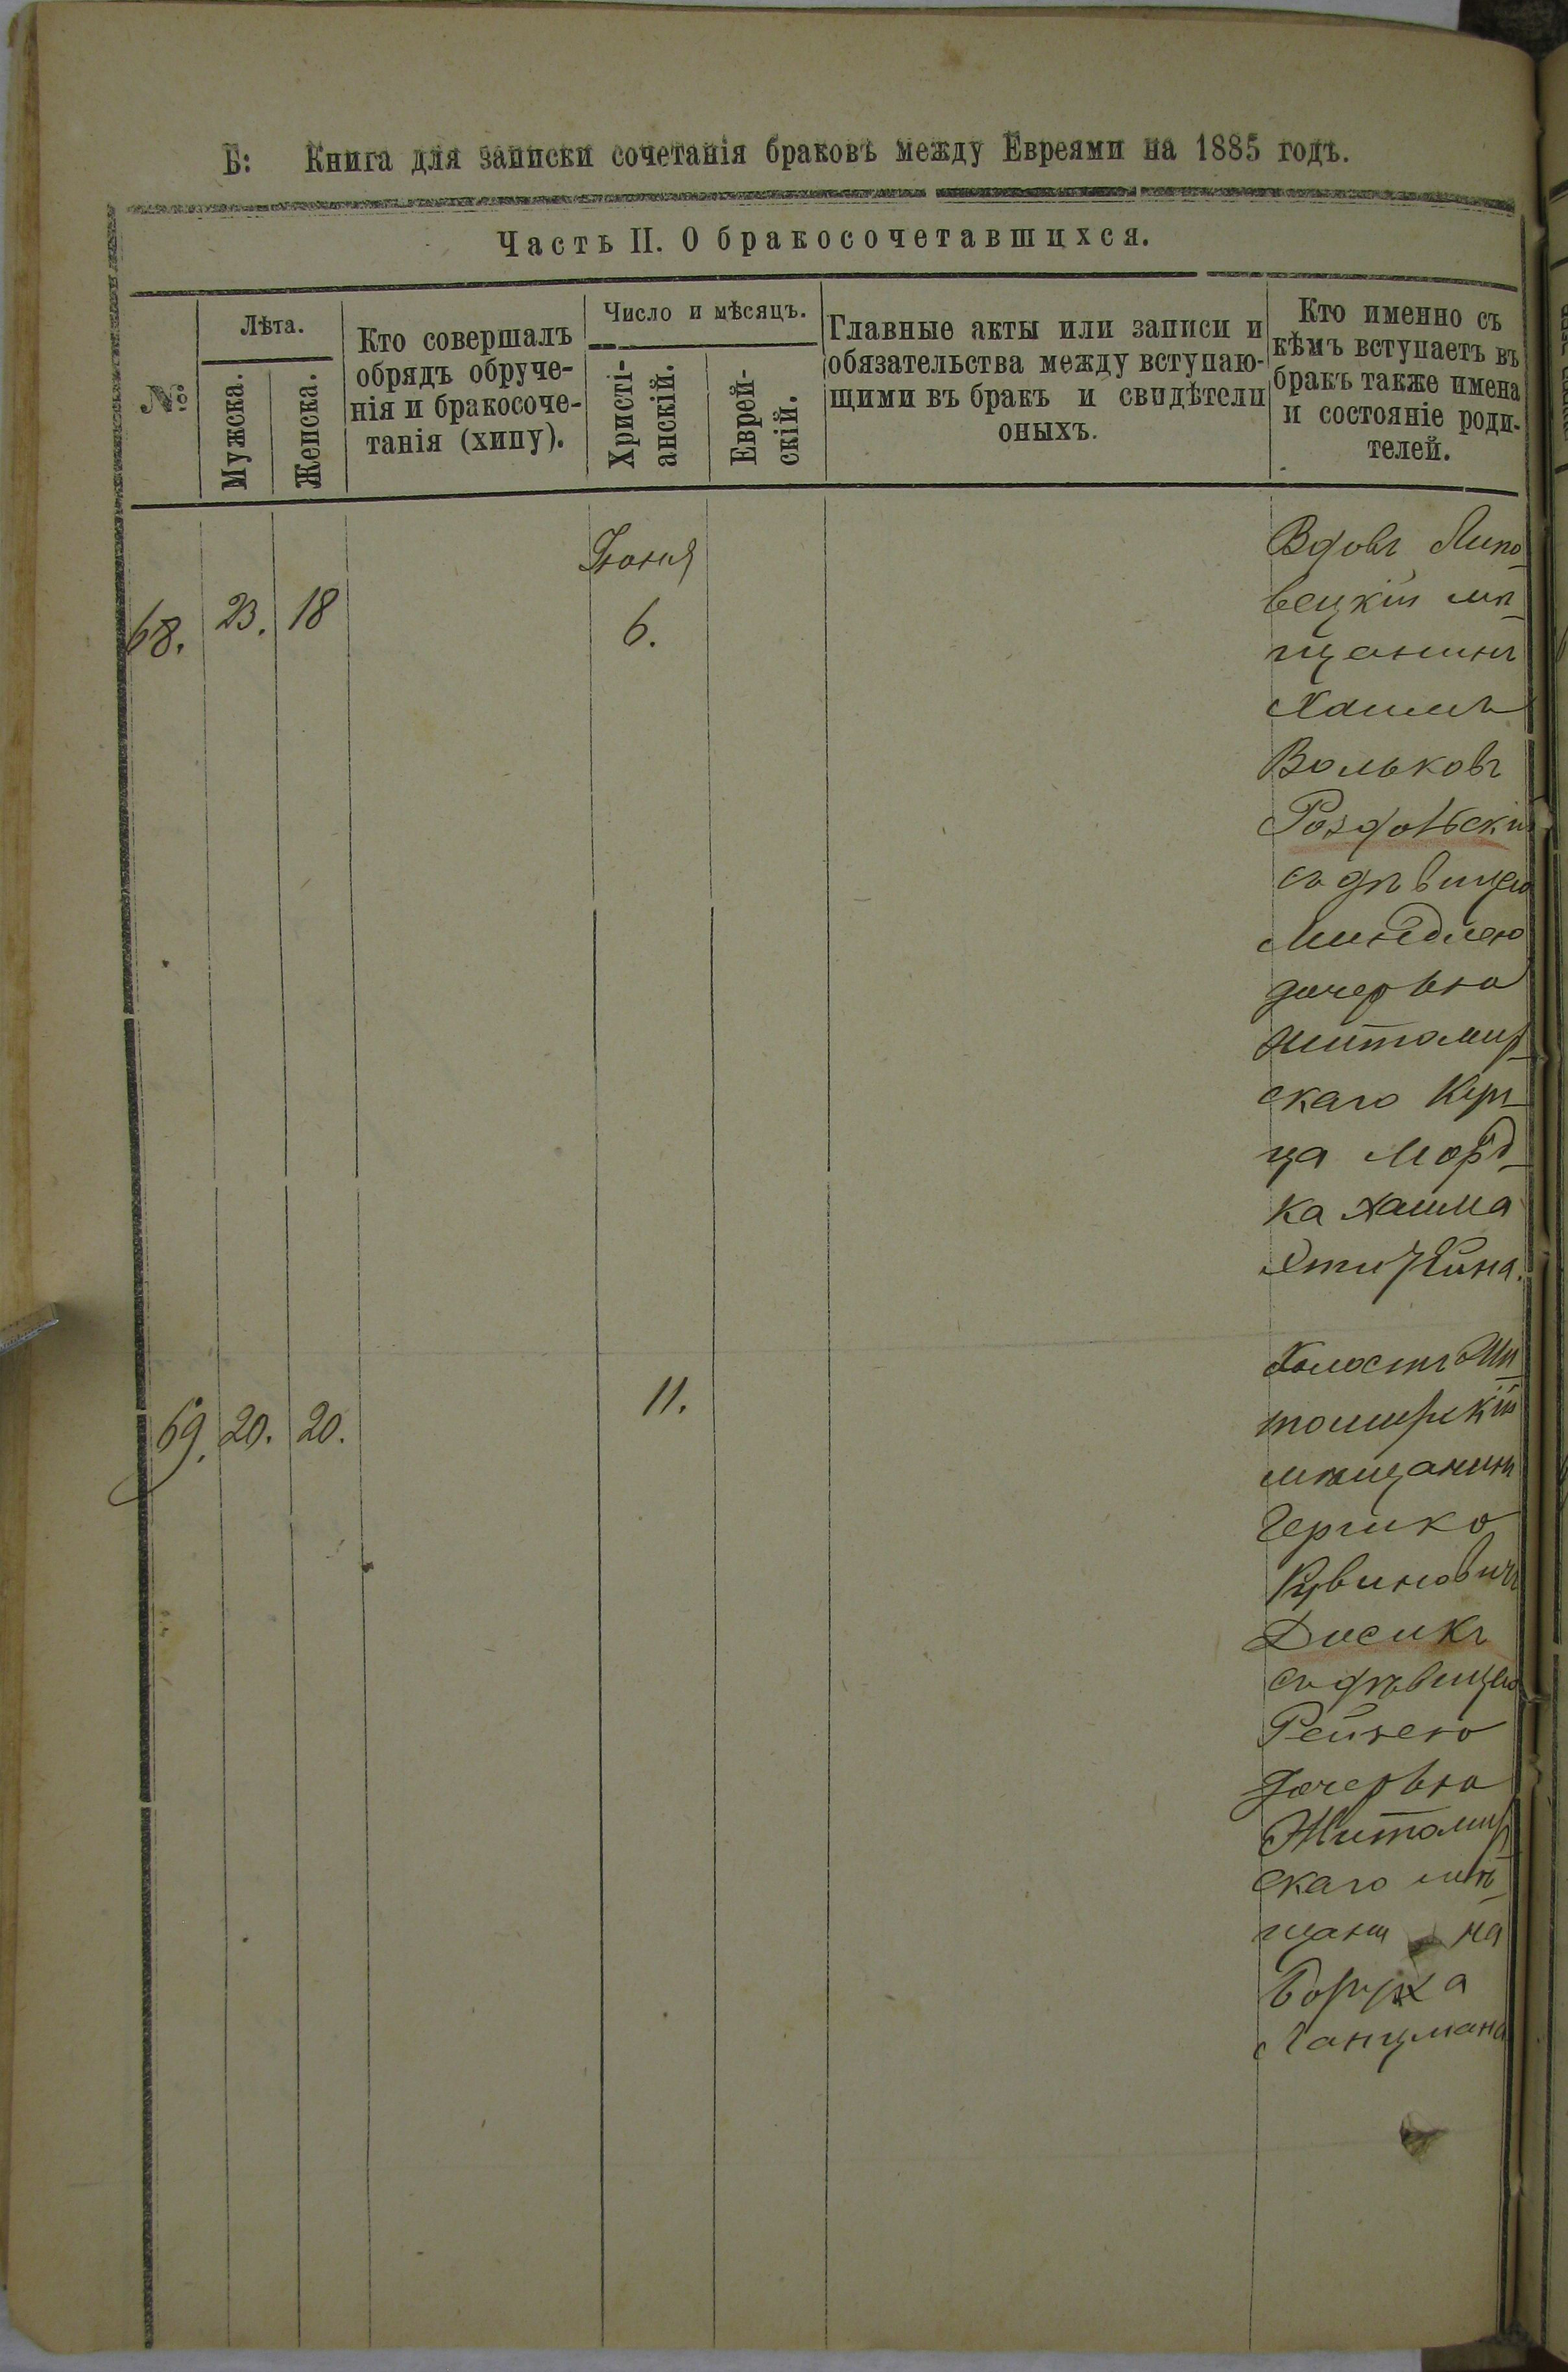 Б: Книга для записки сочетанія браковъ между Евреями на 1885 годъ.
Часть II. О бракосочетавшихся.
№
Лѣта.
Мужска.
Женска.
Кто совершалъ
обрядъ обруче-
нія и бракосоче-
танія (хипу).
Число и мѣсяцъ.
Христі-
анскій.
Еврей-
скій.
Главные акты или записи и
обязательства между вступаю-
щими въ бракъ и свидѣтели
оныхъ.
Кто именно съ
кѣмъ вступаетъ въ
бракъ также имена
и состояніе роди-
телей.
68. 23. 18
Іюня
6.
Вдовъ Липо-
вецкій мѣ-
щанинъ
Хаимъ
Вольковъ
Роздольскій
съ дѣвицею
Миндлею
дочерью
Житомир-
скаго Куп-
ца Морд-
ка Хаима
69. 20. 20.
11.
Холостъ Жи-
томирскій
мѣщанинъ
Гершко
Кувиновичъ
Досикъ
съ дѣвицею
Рейзею
дочерью
Житомир-
скаго мѣ-
щани на
Боруха
Ланцмана